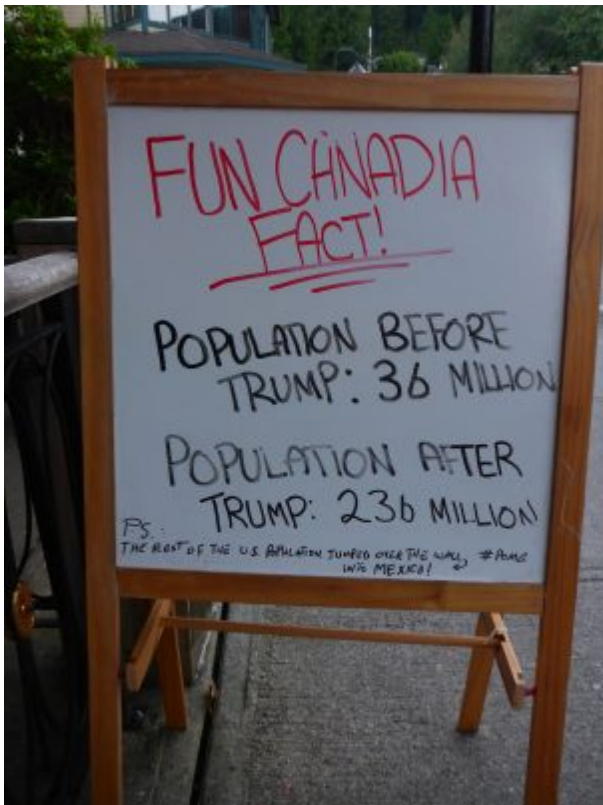 FUN CANADIA
FACT!
POPULATION BEFORE
TRUMP: 36 MILLION
POPULATION AFTER
TRUMP: 236 MILLION
P.S.
THE REST OF THE U.S. POPULATION JUMPED OVER THE WALL
INTO MEXICO!